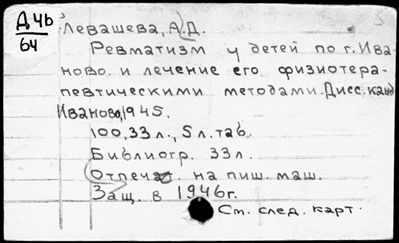 Д 46
64
Левашева, А.Д.
Ревматизм у детей по г. Ива-
ново и лечение его физиотера-
певтическими методами. Дисс. канд
Иваново, 1945.
100, 33 л., 5 л. таб.
Библиогр. 33 л.
Отпечат. на пиш. маш.
Защ. в 1946 г.
См. след. карт.